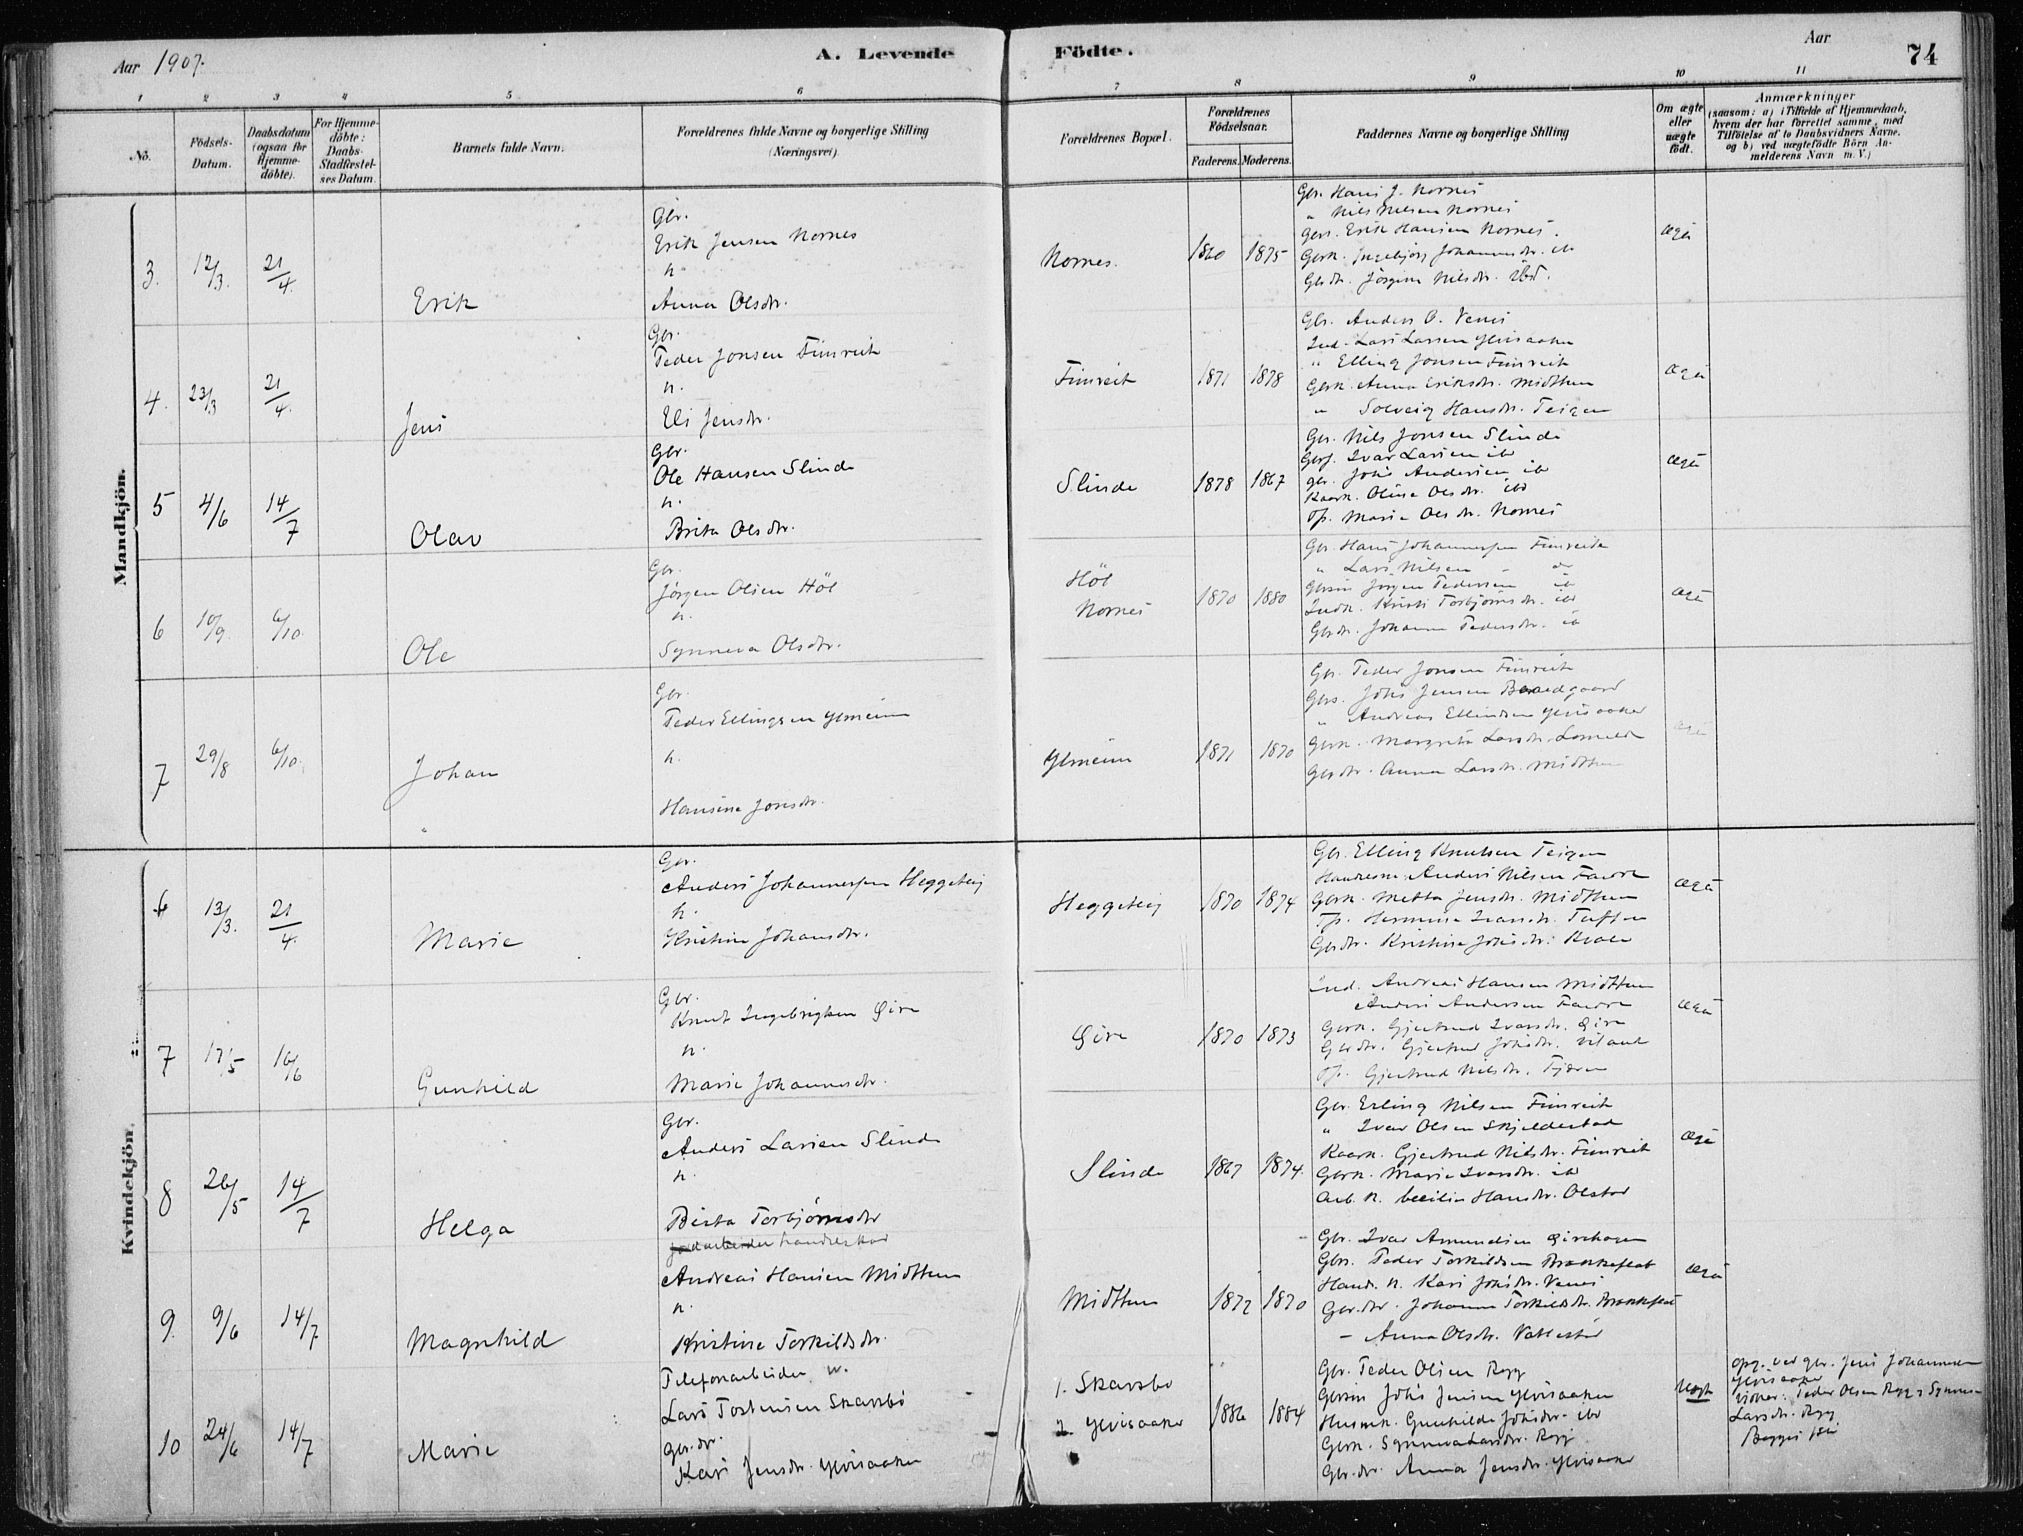 Aar 1907.
A. Levende Födte.
Aar
74
1 2 3 4 5 6 7 8 9 10 11
No.
Födsels-Datum.
Daabsdatum (ogsaa for Hjemme-döbte).
For Hjemme-döbte: Daabs-Stadfæstel-ses Datum.
Barnets fulde Navn.
Forældrenes fulde Navne og borgerlige Stilling (Næringsvei).
Forældrenes Bopæl.
Forældrenes Födselsaar.
Faderens. Moderens.
Faddernes Navne og borgerlig Stilling
Om ægte eller uægte födt.
Anmærkninger
(saasom: a) i Tilfælde af Hjemmedaab, hvem der har forrettet samme, med Tilföielse af to Daabsvidners Navne. og b) ved uægtefödte Börn Anmelderens Navn m. V.)
Mandkjön.
3. 12/3. 21/4. Erik
Gbr.
Erik Jensen Nornes
h.
Anna Olsdtr.
Nornes. 1860 1875
Gbr. Hans J. Nornes
" Nils Nilsen Nornes
Gbrs. Erik Hansen Nornes.
Gbrk. Ingebjörg Johannesdtr. ib
Gbrdtr. Jörgine Nilsdtr. ibd.
ægte
4. 23/3 21/4. Jens
Gbr.
Peder Jonsen Fimreite
h.
Eli Jensdtr.
Fimreite 1871 1878
Gbr. Anders O. Venes
Ind. Lars Larsen Ylvisaaker
" Elling Jonsen Fimreite
Gbrk. Anna Eriksdtr. Midthun
" Solveig Hansdtr. Teigen
ægte
5 4/6 14/7 Olav
Gbr.
Ole Hansen Slinde
h.
Brita Olsdtr.
Slinde 1878 1867
Gbr. Nils Jonsen Slinde
Ivar Larsen ib
gbr. Johs Andersen ib
Kaark. Oline Olsdtr. ibd
Tp. Marie Olsdtr. Nornes
ægte
6 10/9. 6/10. Ole
Gbr.
Jörgen Olsen Höl
h.
Synneva Olsdtr.
Höl
Nornes 1870 1880
Gbr. Hans Johannessen Fimreite
" Lars Nilsen - do
Gbrsön Jörgen Pedersen ib
Indk. Kristi Torbjörnsdtr. ibd
Gbrdtr. Johanne Pedersdtr. ib
ægte
7 29/8 6/10. Johan
Gbr.
Peder Ellingsen Ylmeim
h.
Hansine Jonsdtr.
Ylmeim 1871 1870
Gbr. Peder Jonsen Fimreite
Gbrs. Johs Jensen
" Andreas Ellingsen Ylvisaaker
Gbrk. Margreta Larsdtr. Lomelde
Gbrdtr. Anna Larsdtr. Midthun
ægte
Kvindekjön.
6 13/3. 21/4. Marie
Gbr.
Anders Johannessen Heggeteig
h.
Kristine Johansdtr.
Heggeteig 1870 1874
Gbr. Elling Knutsen Teigen
Anders Nilsen
Gbrk. Metta Jensdtr. Midthun
Tp. Hermine Ivarsdtr. Tuften
Gbrdtr. Kristine Johsdtr. Kvale
ægte
7 17/5 16/6 Gunhild
Gbr.
Knut Ingebrigtsen Eire
h.
Marie Johannesdtr.
Eire 1870 1873
ind. Andreas Hansen Midthun
Anders Andersen
Gbrk. Gjertrud Ivarsdtr. Eire
Gbrdtr. Gjertrud Johsdtr.
Tp. Gjertrud Nilsdtr.
ægte
8 26/5 14/7 Helga
Gbr.
Anders Larsen Slinde
h.
Birta Torbjörnsdtr
Slinde 1867 1874.
Gbr. Erling Nilsen Fimreite
" Ivar Olsen Skjeldestad
Kaark. Gjertrud Nilsdtr. Fimreite
Gbrk. Marie Ivarsdtr. ib
Arb. k. Cecilie Hansdtr. Olstad
ægte
9. 9/6 14/7 Magnhild
Andreas Hansen Midthun
h.
Kristine Torkildsdtr.
Midthun 1872 1870
Gbr. Ivar Amundsen Eirehagen
Gbrs. Peder Torkildsen
Handk. Kari Johsdtr. Venes
Gbr.dtr. Johanne Torkildsdtr.
- Anna Olsdtr. Vallestad
ægte
10 24/6 14/7 Marie
Telefonarbeider u.
Lars Tostensen Skarsbö
Gbr.dtr.
Kari Jensdtr. Ylvisaaker
1. Skarsbö
2. Ylvisaaker 1886 1884
Gbr. Peder Olsen Rygg
Gbrsön Johs Jensen Ylvisaaker
Husmk. Gunhilde Johsdtr. ibd
Gbrk. Synneva Larsdtr. Rygg
Gbr.dtr. Anna Jensdtr. Ylvisaaker
uægte
opg. ved gbr. Jens Johannesen
Ylvisaaker
vidner: Peder Olsen Rygg & Synneva
Larsdtr. Rygg.
Begges